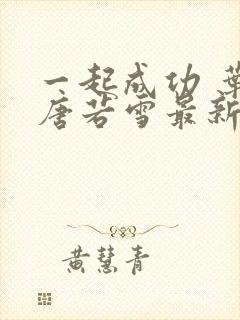 一起成功 葉
唐若雪最新
黃慧青